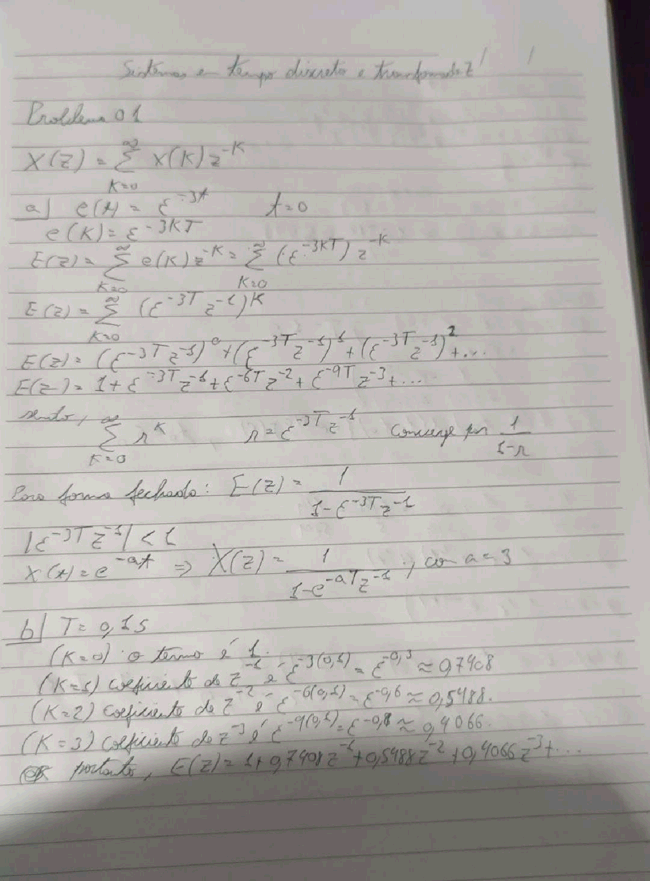 Sistemas em tempo discreto e transformada Z
Problema 01
X(z) = ∞∑K=0 x(K) z^-K
a) e(t) = ε^-3t t=0
e(K) = ε^-3KT
E(z) = ∞∑K=0 e(K) z^-K = ∞∑K=0 (ε^-3KT) z^-K
E(z) = ∞∑K=0 (ε^-3T z^-1)^K
E(z) = (ε^-3T z^-1)^0 + (ε^-3T z^-1)^1 + (ε^-3T z^-1)^2 + ...
E(z) = 1 + ε^-3T z^-1 + ε^-6T z^-2 + ε^-9T z^-3 + ...
sendo, ∞∑K=0 r^K r = ε^-3T z^-1 converge por 1/(1-r)
Para forma fechada: E(z) = 1/(1-ε^-3T z^-1)
|ε^-3T z^-1| < 1
X(t) = e^-at ⇒ X(z) = 1/(1-e^-aT z^-1), com a = 3
b) T = 0,1s
(K=0) o termo é 1.
(K=1) coeficiente de z^-1 é ε^-3(0,1) = ε^-0,3 ≈ 0,7408
(K=2) coeficiente de z^-2 é ε^-6(0,1) = ε^-0,6 ≈ 0,5488.
(K=3) coeficiente de z^-3 é ε^-9(0,1) = ε^-0,9 ≈ 0,4066.
portanto, E(z) = 1 + 0,7408z^-1 + 0,5488z^-2 + 0,4066z^-3 + ...